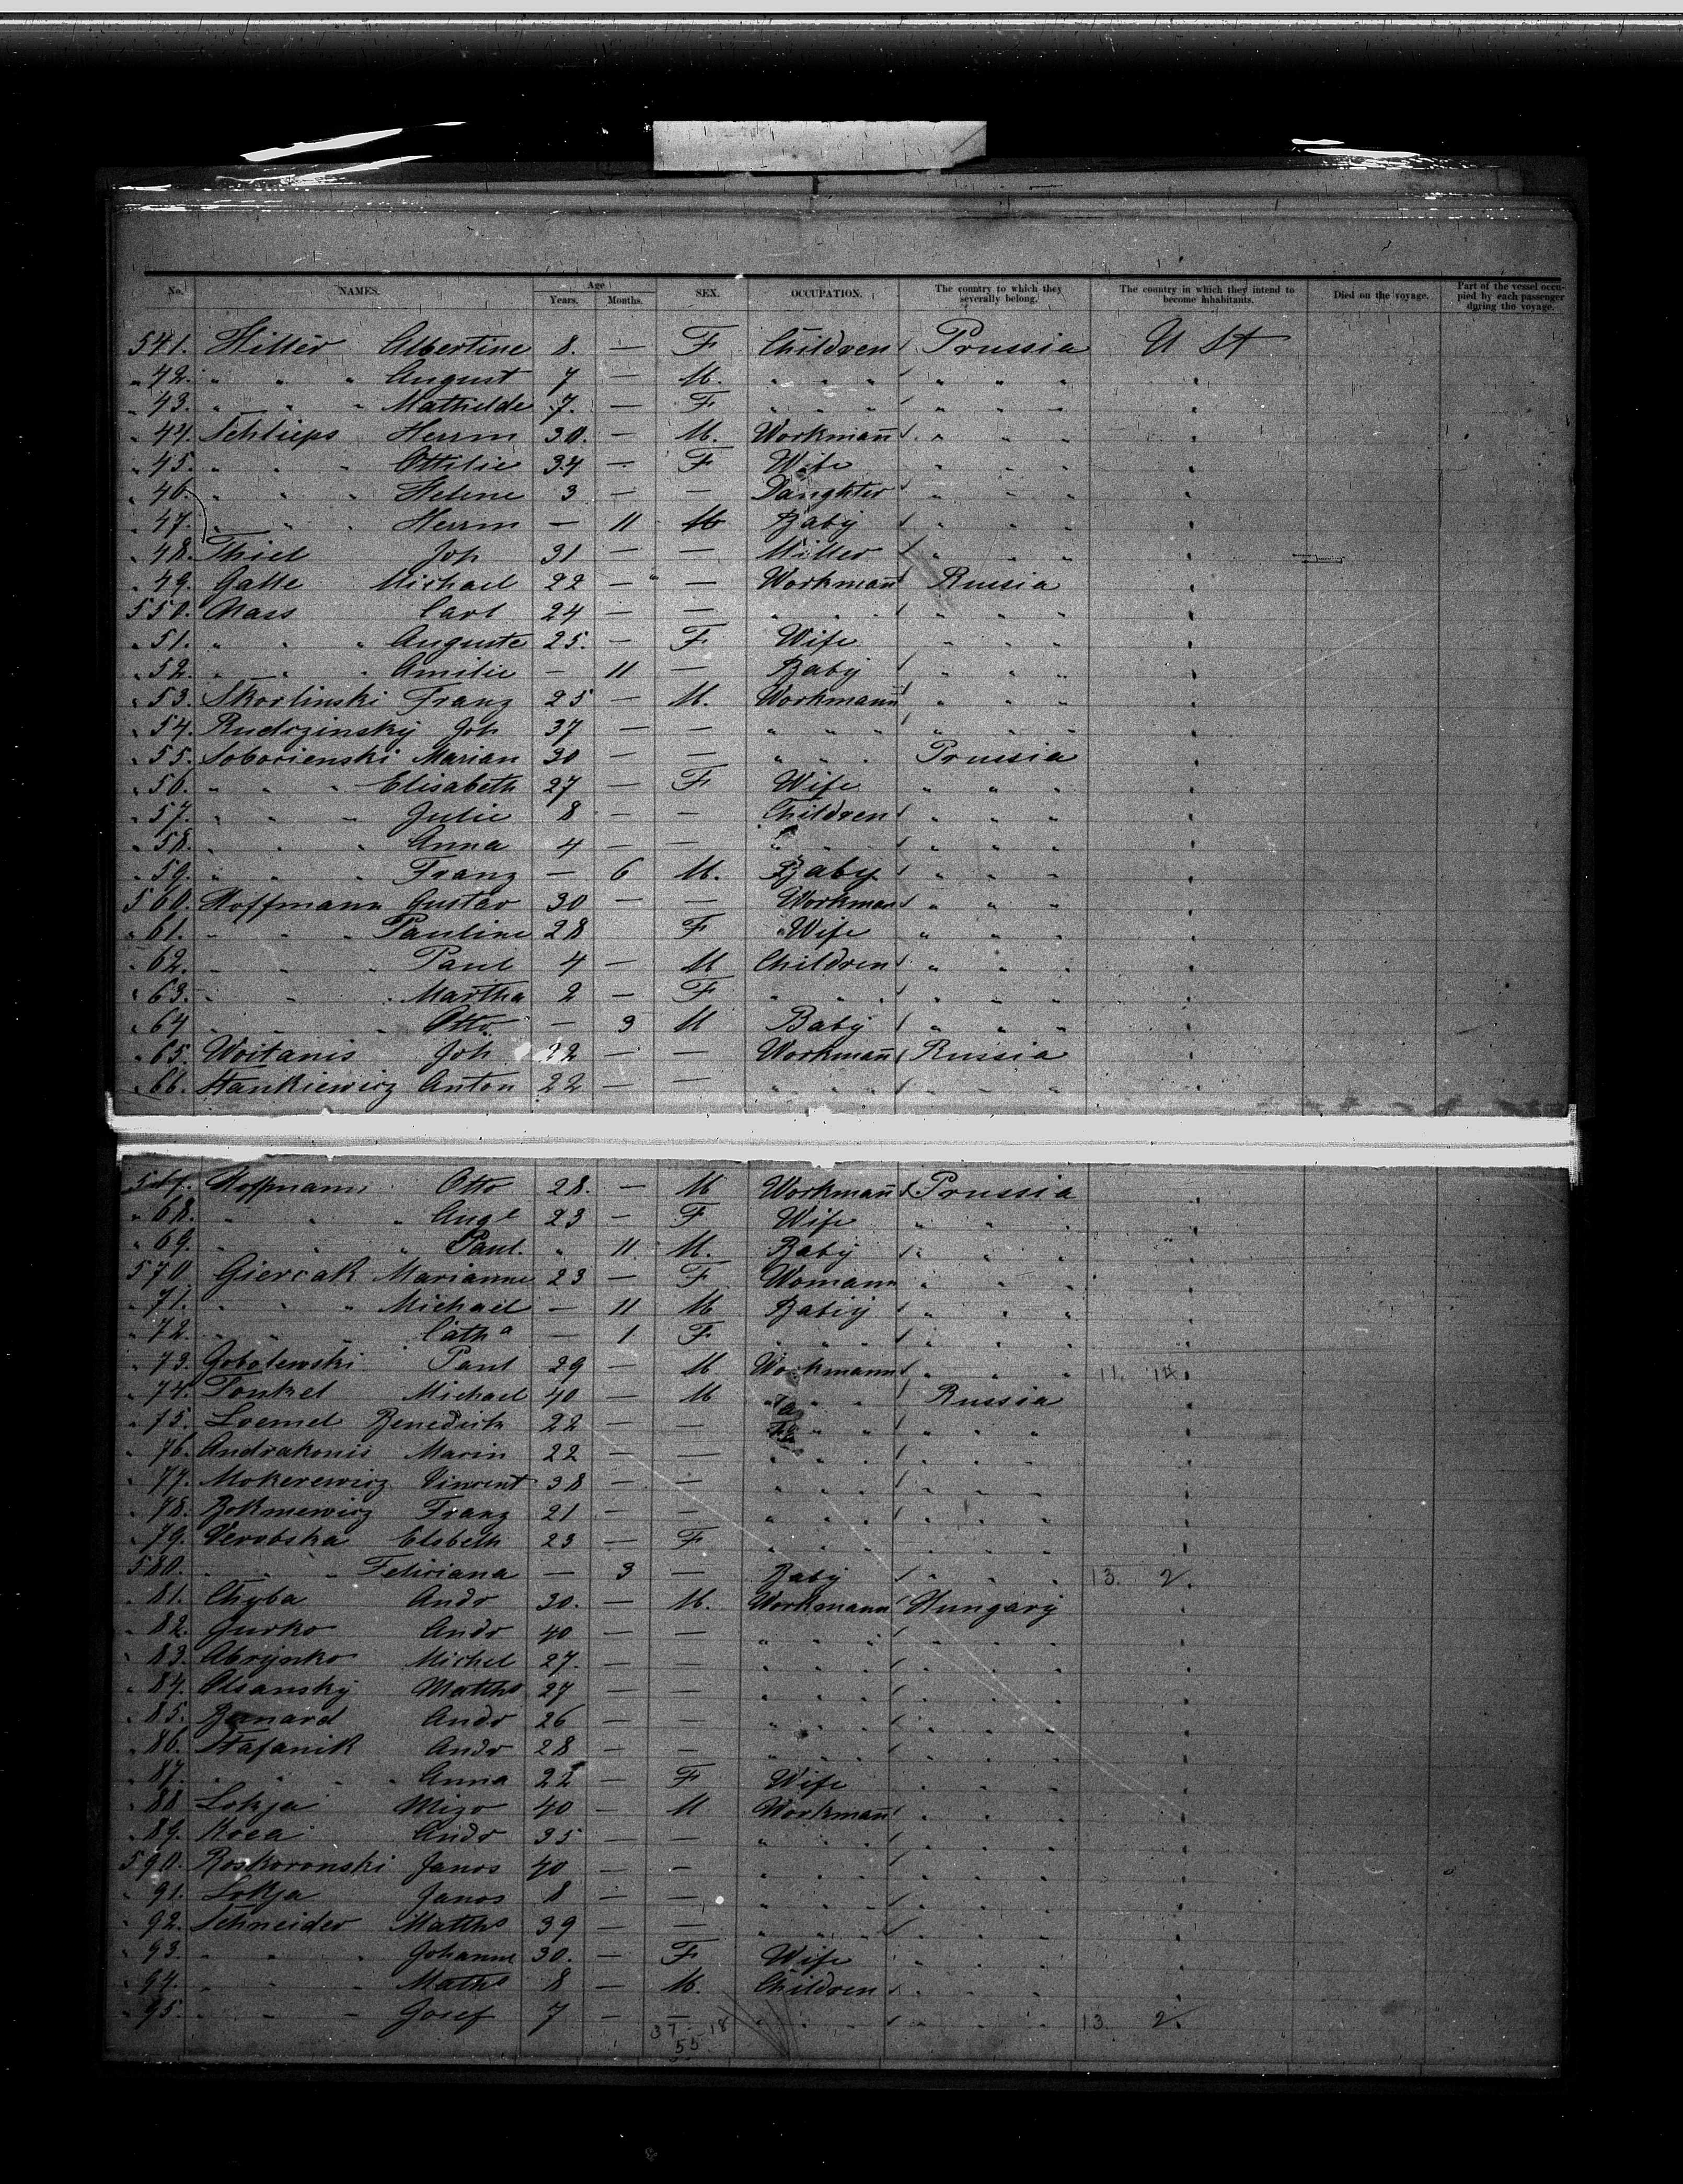 No. NAMES. Age Years. Months. SEX. OCCUPATION. The country to which they severally belong. The country in which they intend to become inhabitants. Died on the voyage. Part of the vessel occupied by each passenger during the voyage.
541. Hiller Albertine 8. — F Children Prussia U St
" 42. " " " August 7 — M. " " " " " " "
" 43. " " " Mathilde 7. — F " " " " " " "
" 44. Schlieps Herrm 30. — M. Workmann " " " "
" 45. " " " Ottilie 34 — F Wife " " " "
" 46. " " " Helene 3 — — Daughter " " " "
" 47. " " " Herrm — 11 M Baby " " " "
" 48. Thiel Joh 31 — — Miller " " " "
" 49. Galle Michael 22 — — Workmann Russia "
550. Nass Carl 24 — — " " " " " " "
" 51. " " " Auguste 25. — F Wife " " " "
" 52. " " " Amilie — 11 — Baby " " " "
" 53. Skorlinski Franz 25 — M. Workmann " " " "
" 54. Rudrzinsky Joh 37 — — " " " " " " "
" 55. Soborienski Marian 30 — — " " " Prussia "
" 56. " " " Elisabeth 27 — F Wife " " " "
" 57. " " " Julie 8 — — Children " " " "
" 58. " " " Anna 4 — — " " " " " "
" 59. " " " Franz — 6 M. Baby " " " "
560. Hoffmann Gustav 30 — — Workman " " " "
" 61. " " " Pauline 28 F Wife " " " "
" 62. " " " Paul 4 — M Children " " " "
" 63. " " " Martha 2 — F " " " " " " "
" 64 " " " Otto — 3 M Baby " " " "
" 65. Woitanis Joh 22 — — Workmann Russia "
" 66. Stankiewicz Anton 22 — — " " " " " " "
567. Hoffmann Otto 28. — M Workmann Prussia "
" 68. " " " Auge 23 — F Wife " " " "
" 69. " " " Paul. " 11 M. Baby " " " "
570. Giercak Marianne 23 — F Womann " " " "
" 71. " " " Michael — 11 M Babiy " " " "
" 72. " " " Catha — 1 F " " " " " " "
" 73. Gobolewski Paul 29 — M Workmann " " " 11.
" 74. Tonkel Michael 40 — M " " " Russia "
" 75. Loemel Benedickt 22 — — " " " " " "
" 76. Andrakonis Marin 22 — — " " " " " " "
" 77. Mokerewicz Vincent 38 — — " " " " " " "
" 78. Bokmewicz Franz 21 — — " " " " " " "
" 79. Verobska Elsbeth 23 — F " " " " " " "
580. " " " Feliciana — 3 — Baby " " " 13. 2.
" 81. Chyba Andr 30. — M. Workmann Hungary "
" 82. Jurko Andr 40 — — " " " " " " "
" 83. Abrynko Michel 27. — — " " " " " " "
" 84. Olsansky Matths 27 — — " " " " " " "
" 85. Andr 26 — — " " " " " " "
" 86. Stafanik Andr 28 — — " " " " " " "
" 87. " " " Anna 22 — F Wife " " " "
" 88 Lokja Mizo 40 — M Workmann " " " "
" 89. Koea Andr 35 — — " " " " " " "
590. Roskoronski Janos 40 — — " " " " " " "
" 91. Lokja Janos 8 — — " " " " " " "
" 92. Schneider Matths 39 — — " " " " " " "
" 93. " " " Johanne 30. — F Wife " " " "
" 94. " " " Maths 8 — M. Children " " " "
" 95. " " " Josef 7 — — " " " " " " 13. 2.
37 18
55